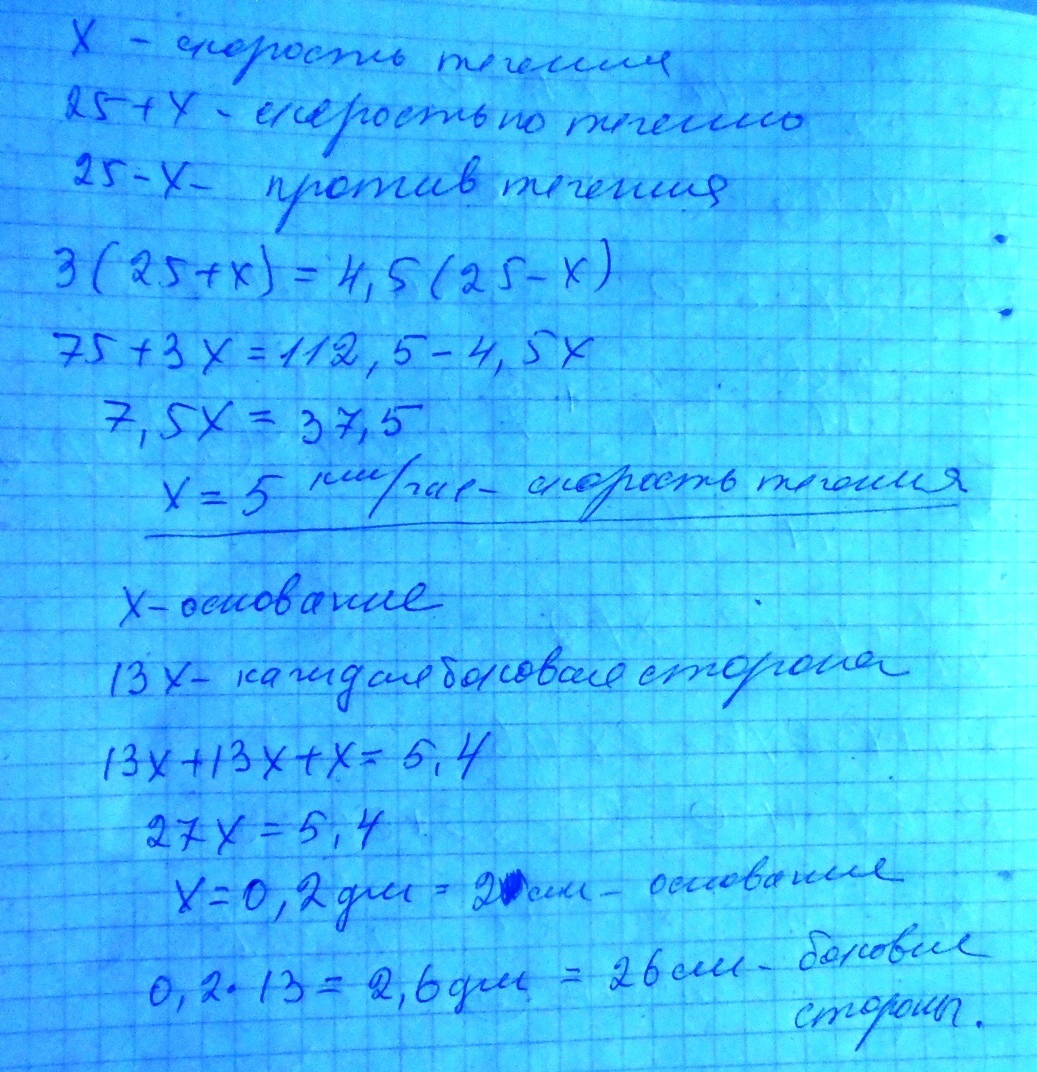 X - скорость течения
25+X - скорость по течению
25-X- против течения
3(25+x)=4,5(25-x)
75+3X=112,5-4,5X
7,5X=37,5
X=5 км/час- скорость течения
X-основание
13X- каждая боковая сторона
13X+13X+X=5,4
27X=5,4
X=0,2дм=2см- основание
0,2·13=2,6дм=26см- боковые
стороны.